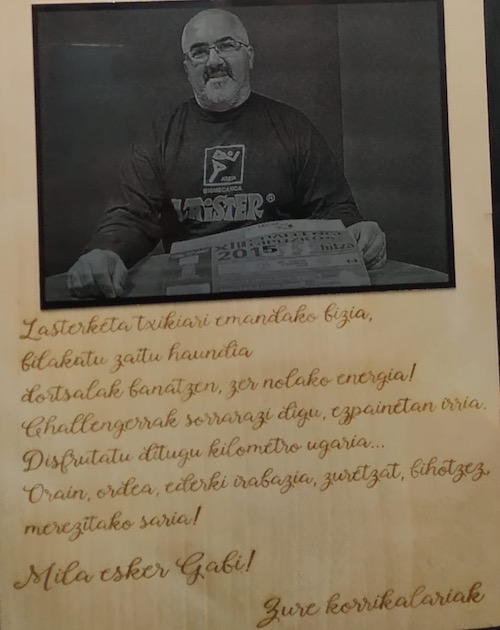 BIOMECANICA
MISTER®
CHALLENGE
XIII GIPUZKOA
2015 hitza
Lasterketa txikiari emandako bizia,
bilakatu zaitu haundia
dortsalak banatzen, zer nolako energia!
Challengerrak sorrarazi digu, ezpainetan irria.
Disfrutatu ditugu kilometro ugaria...
Orain, ordea, ederki irabazia, zuretzat, bihotzez,
merezitako saria!
Mila esker Gabi!
Zure korrikalariak